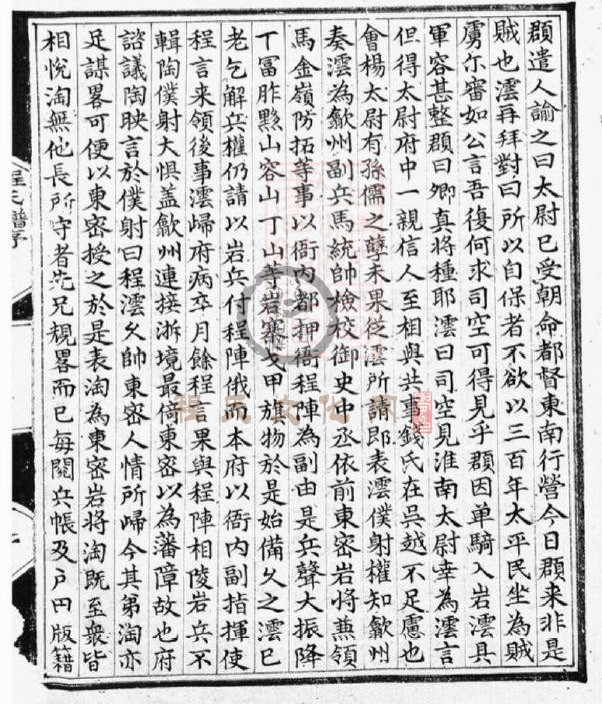 頵遣人諭之曰太尉已受朝命都督東南行營今日頵来非是
賊也澐再拜對曰所以自保者不欲以三百年太平民坐為賊
虜尔審如公言吾復何求司空可得見乎頵因单騎入岩澐具
軍容甚整頵曰卿真将種耶澐曰司空見淮南太尉幸為澐言
但得太尉府中一親信人至相與共事錢氏在吳越不足慮也
會楊太尉有孫儒之孽未果従澐所請即表澐僕射權知歙州
奏澐為歙州副兵馬統帥檢校御史中丞依前東密岩将兼領
馬金嶺防拓等事以衙内都押衙程陣為副由是兵聲大振降
丁冨胙黟山容山丁山等岩寨戈甲旗物於是始備久之澐已
老乞解兵權仍請以岩兵付程陣俄而本府以衙内副指揮使
程言来領後事澐歸府病卒月餘程言果與程陣相陵岩兵不
輯陶僕射大惧盖歙州連接浙境最倚東密以為藩障故也府
諮議陶映言於僕射曰程澐久帥東密人情所歸今其弟淘亦
足謀畧可便以東密授之於是表淘為東密岩将淘既至衆皆
相悦淘無他長所守者先兄規畧而已每閱兵帳及户田版籍
程氏譜序
程氏文化网